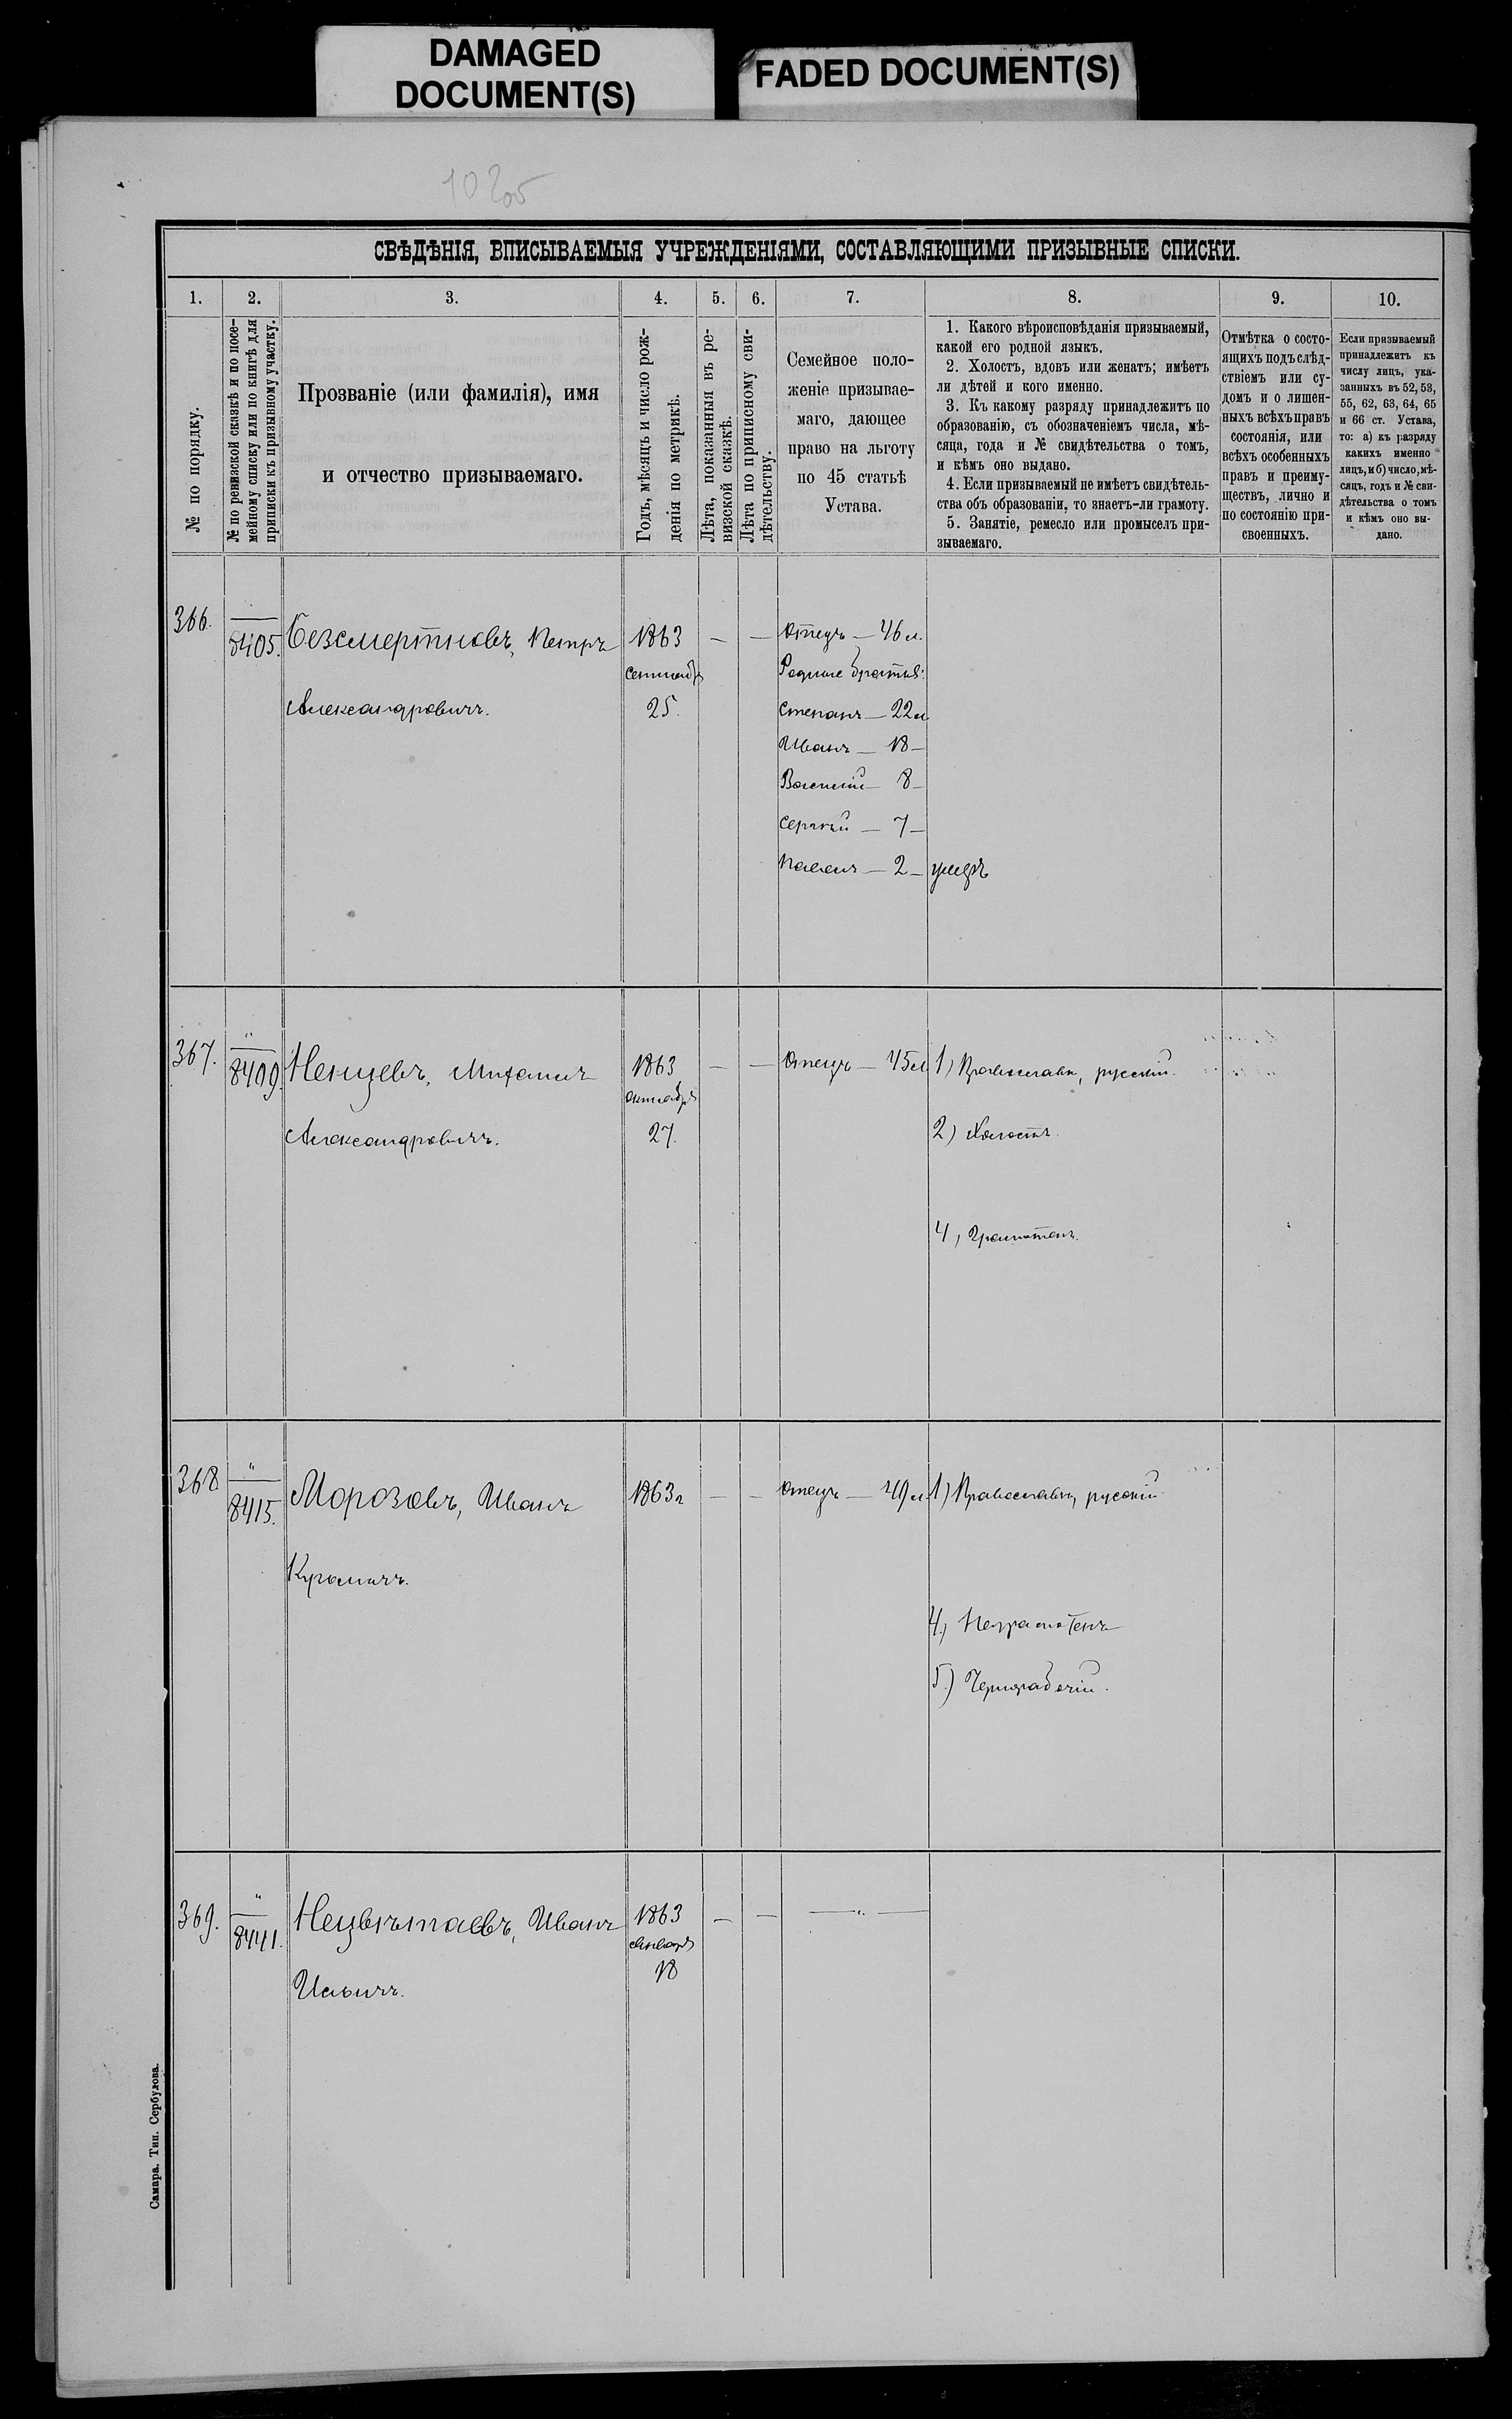 DAMAGED
DOCUMENT(S)
FADED DOCUMENT(S)
СВѢДѢНІЯ, ВПИСЫВАЕМЫЯ УЧРЕЖДЕНІЯМИ, СОСТАВЛЯЮЩИМИ ПРИЗЫВНЫЕ СПИСКИ.
1.
2.
3.
4.
5.
6.
7.
8.
9.
10.
№ по порядку.
№ по ревизской сказкѣ и по посе-
мейному списку или по книгѣ для
приписки къ призывному участку.
Прозваніе (или фамилія), имя
и отчество призываемаго.
Годъ, мѣсяцъ и число рож-
денія по метрикѣ.
Лѣта, показанныя въ ре-
визской сказкѣ.
Лѣта по приписному сви-
дѣтельству.
Семейное поло-
женіе призывае-
маго, дающее
право на льготу
по 45 статьѣ
Устава.
1. Какого вѣроисповѣданія призываемый,
какой его родной языкъ.
2. Холостъ, вдовъ или женатъ; имѣетъ
ли дѣтей и кого именно.
3. Къ какому разряду принадлежитъ по
образованію, съ обозначеніемъ числа, мѣ-
сяца, года и № свидѣтельства о томъ,
и кѣмъ оно выдано.
4. Если призываемый не имѣетъ свидѣтель-
ства объ образованіи, то знаетъ-ли грамоту.
5. Занятіе, ремесло или промыселъ при-
зываемаго.
Отмѣтка о состо-
ящихъ подъ слѣд-
ствіемъ или су-
домъ и о лишен-
ныхъ всѣхъ правъ
состоянія, или
всѣхъ особенныхъ
правъ и преиму-
ществъ, лично и
по состоянію при-
своенныхъ.
Если призываемый
принадлежитъ къ
числу лицъ, ука-
занныхъ въ 52, 53,
55, 62, 63, 64, 65
и 66 ст. Устава,
то: а) къ разряду
какихъ именно
лицъ, и б) число, мѣ-
сяцъ, годъ и № сви-
дѣтельства о томъ
и кѣмъ оно вы-
дано.
366.
8405.
Безсмертновъ, Петръ
Александровичъ.
1863
сентября
25.
— —
Отецъ — 46 л.
Родные братья:
Степанъ — 22 л
Иванъ — 18 —
Василій — 8 —
Сергѣй — 7 —
Павелъ — 2 — умеръ
367.
"
8409.
Ненцевъ, Михаилъ
Александровичъ.
1863
октября
27.
— —
Отецъ — 45 л
1) Православн, русскій.
2) Холостъ.
4, Грамотенъ.
368
"
8415.
Морозовъ, Иванъ
1863 г
— —
Отецъ — 49 л.
1) Православн, русскій
4.) Неграмотенъ
5.) Чернорабочій.
369.
"
8441.
Нецвѣтаевъ, Иванъ
Ильичъ.
1863
Января
18
— —
— " —
Самара. Тип. Сербулова.